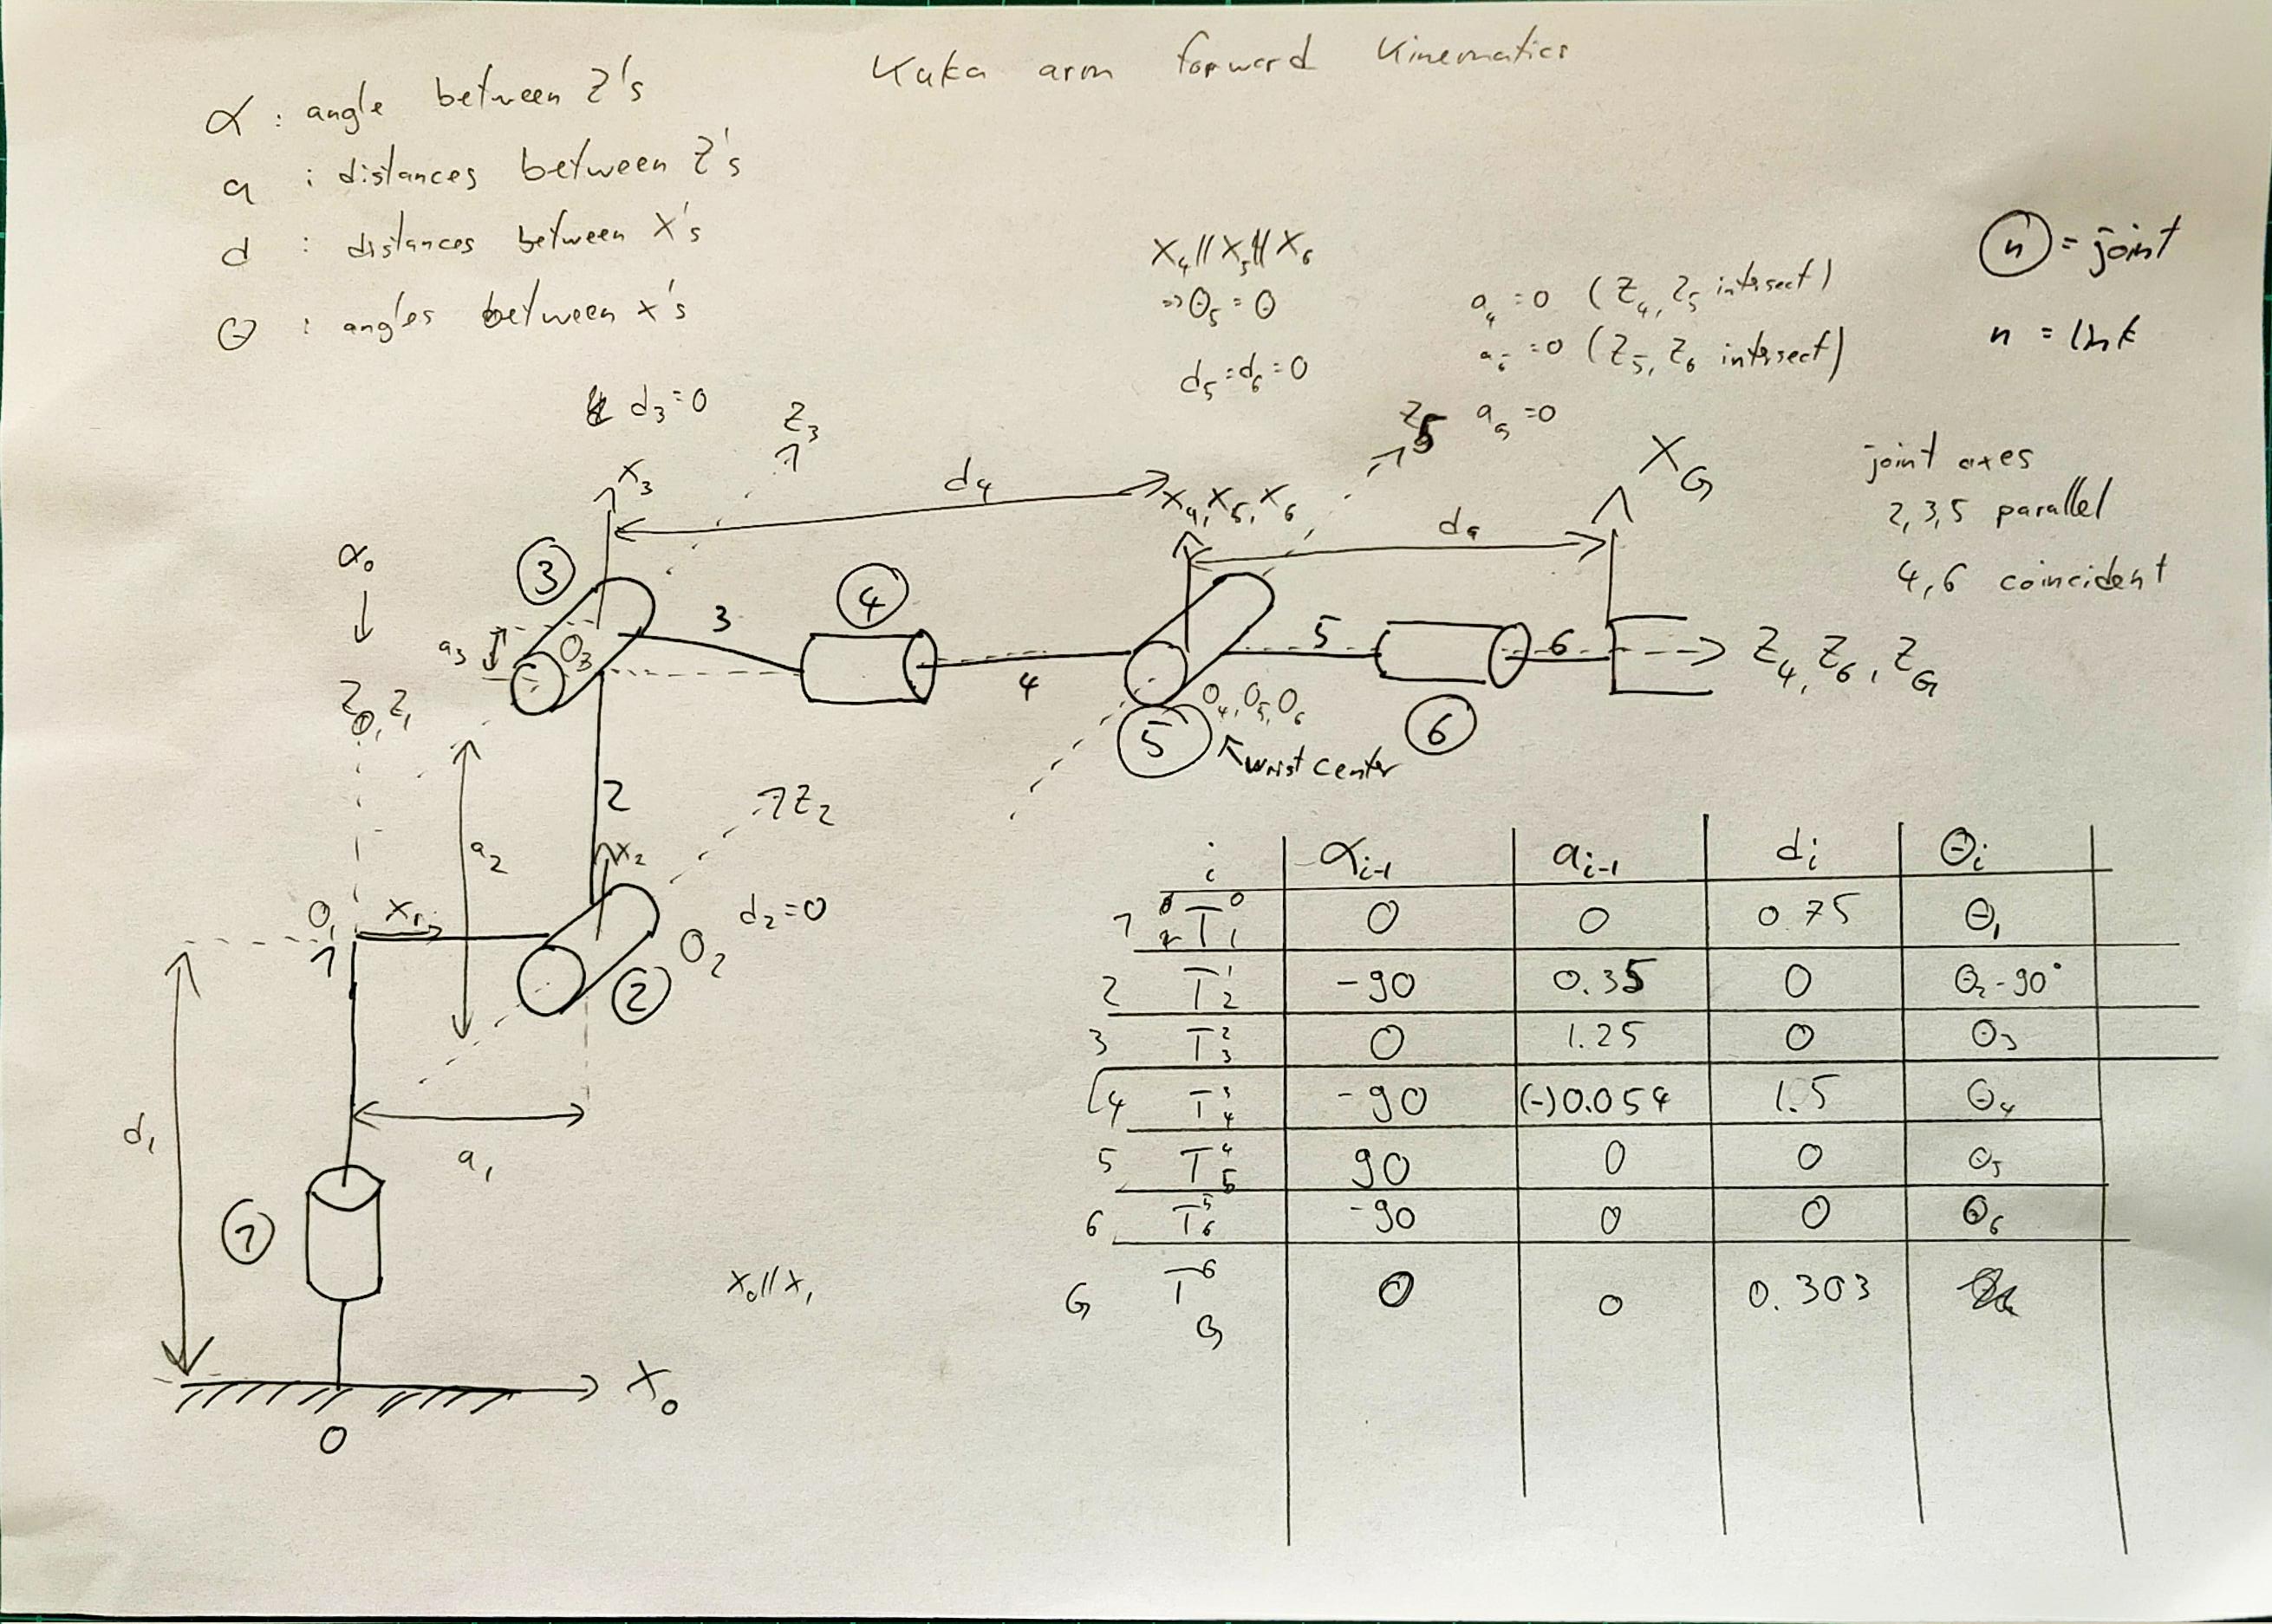 Kuka arm forward Kinematics
α : angle between Z's
a : distances between Z's
d : distances between X's
Θ : angles between x's
X₄ // X₅ // X₆
=> Θ₅ = Θ
d₅ = d₆ = 0
a₄ = 0 (Z₄, Z₅ intersect)
=0 (Z₅, Z₆ intersect)
=0
n = joint
n = link
joint axes
2,3,5 parallel
4,6 coincident
d₃ = 0
Z₃
X₃
d₄
X₄, X₅, X₆
Z₅
X_G
α₀
3
a₃
O₃
3
4
4
5
6
6
Z₄, Z₆, Z_G
Z₀, Z₁
O₄, O₅, O₆
5
wrist center
2
a₂
X₂
Z₂
O₁
X₁
1
O₂
2
d₂ = 0
d₁
a₁
1
X₀ // X₁
X₀
0
i αᵢ₋₁ aᵢ₋₁ dᵢ Θᵢ
1 T⁰₁ 0 0 0.75 Θ₁
2 T¹₂ -90 0.35 0 Θ₂-90°
3 T²₃ 0 1.25 0 Θ₃
4 T³₄ -90 (-)0.054 1.5 Θ₄
5 T⁴₅ 90 0 0 Θ₅
6 T⁵₆ -90 0 0 Θ₆
G T⁶_G 0 0 0.303